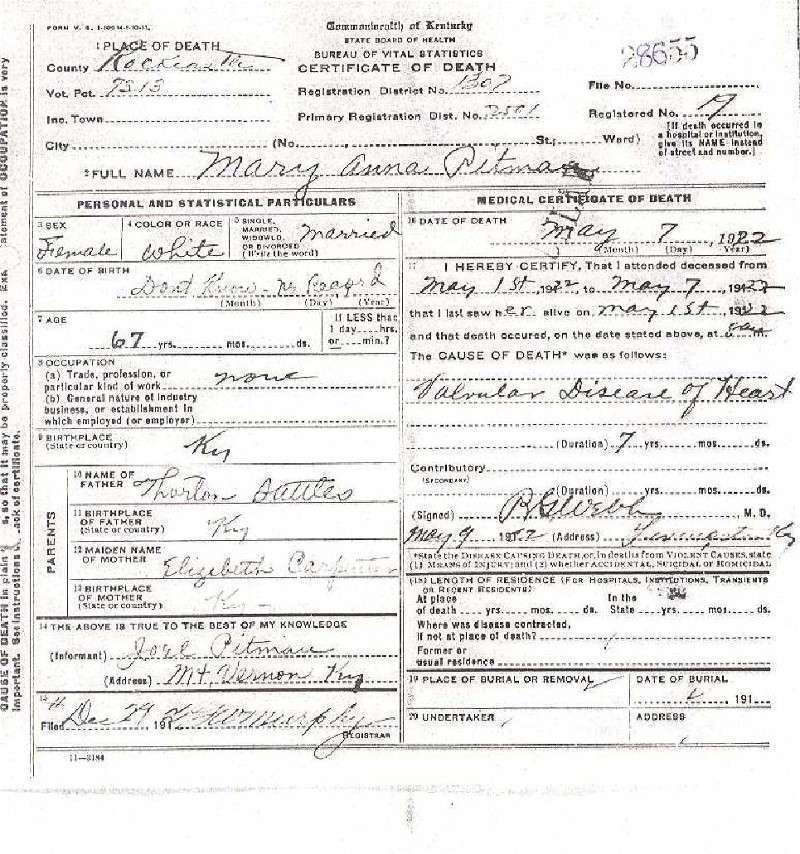 FORM V. S.
Commonwealth of Kentucky
STATE BOARD OF HEALTH
BUREAU OF VITAL STATISTICS
CERTIFICATE OF DEATH
28655
1 PLACE OF DEATH
County
Vot. Pct. 7313
Inc. Town
City (No. St.; Ward)
Registration District No. 1307
Primary Registration Dist. No. 2501
File No.
Registered No. 19
[If death occurred in
a hospital or institution,
give its NAME instead
of street and number.]
2 FULL NAME Mary Anna Pitman
PERSONAL AND STATISTICAL PARTICULARS
3 SEX
Female
4 COLOR OR RACE
White
5 SINGLE,
MARRIED,
WIDOWED,
OR DIVORCED
(Write the word)
Married
6 DATE OF BIRTH
Dont Know - no Record
(Month) (Day) (Year)
7 AGE
67 yrs. mos. ds.
If LESS than
1 day hrs.
or min.?
8 OCCUPATION
(a) Trade, profession, or
particular kind of work none
(b) General nature of industry
business, or establishment in
which employed (or employer)
9 BIRTHPLACE
(State or country) Ky
PARENTS
10 NAME OF
FATHER
11 BIRTHPLACE
OF FATHER
(State or country) Ky
12 MAIDEN NAME
OF MOTHER Elizabeth Carpenter
13 BIRTHPLACE
OF MOTHER
(State or country) Ky
14 THE ABOVE IS TRUE TO THE BEST OF MY KNOWLEDGE
(Informant) Joel Pitman
(Address) Mt. Vernon Ky
15
Filed Dec 29 191 Murphy
REGISTRAR
11—3184
MEDICAL CERTIFICATE OF DEATH
16 DATE OF DEATH
May 7, 1922
(Month) (Day) (Year)
17 I HEREBY CERTIFY, That I attended deceased from
May 1st, 1922, to May 7, 1922
that I last saw her alive on May 1st 1922
and that death occured, on the date stated above, at m.
The CAUSE OF DEATH* was as follows:
Valvular Disease of Heart
(Duration) 7 yrs. mos. ds.
Contributory
(SECONDARY)
(Duration) yrs. mos. ds.
(Signed) Webb M. D.
May 9 1912 (Address) Ky
*State the DISEASE CAUSING DEATH, or, in deaths from VIOLENT CAUSES, state
(1) MEANS OF INJURY; and (2) whether ACCIDENTAL, SUICIDAL or HOMICIDAL
(18) LENGTH OF RESIDENCE (FOR HOSPITALS, INSTITUTIONS, TRANSIENTS
OR RECENT RESIDENTS)
At place In the
of death yrs. mos. ds. State yrs. mos. ds.
Where was disease contracted,
if not at place of death?
Former or
usual residence
19 PLACE OF BURIAL OR REMOVAL
DATE OF BURIAL
191
20 UNDERTAKER
ADDRESS
CAUSE OF DEATH in plain s, so that it may be properly classified. Exa tement of OCCUPATION is very
important. See instructions ack of certificate.